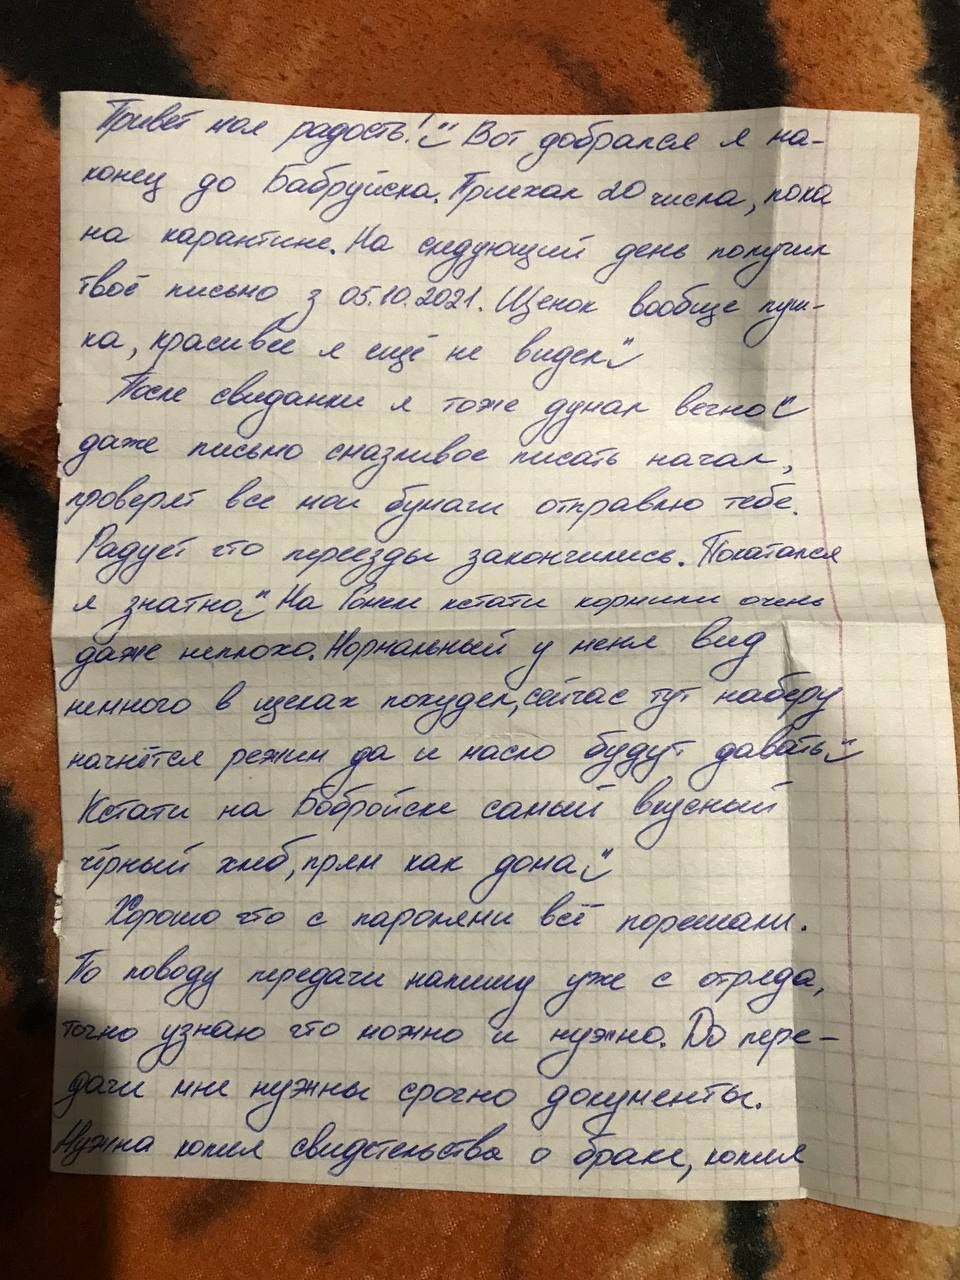 Привет моя радость! Вот добрался я на-
конец до Бабруйска. Приехал 20 числа, пока
на карантине. На следующий день получил
твоё письмо з 05.10.2021. Щенок вообще пуш-
ка, красивее я ещё не видел
После свиданки я тоже думал вечно
даже письмо смазливое писать начал,
проверят все мои бумаги отправлю тебе.
Радует что переезды закончились. Покатался
я знатно На кстати кормили очень
даже неплохо. Нормальный у меня вид
немного в щеках похудел, сейчас тут наберу
начнётся режим да и масло будут давать
Кстати на Бобройске самый вкусный
чёрный хлеб, прям как дома
Хорошо что с паролями всё порешали.
По поводу передачи напишу уже с отряда,
точно узнаю что можно и нужно. До пере-
дачи мне нужны срочно документы.
Нужна копия свидетельства о браке, копия